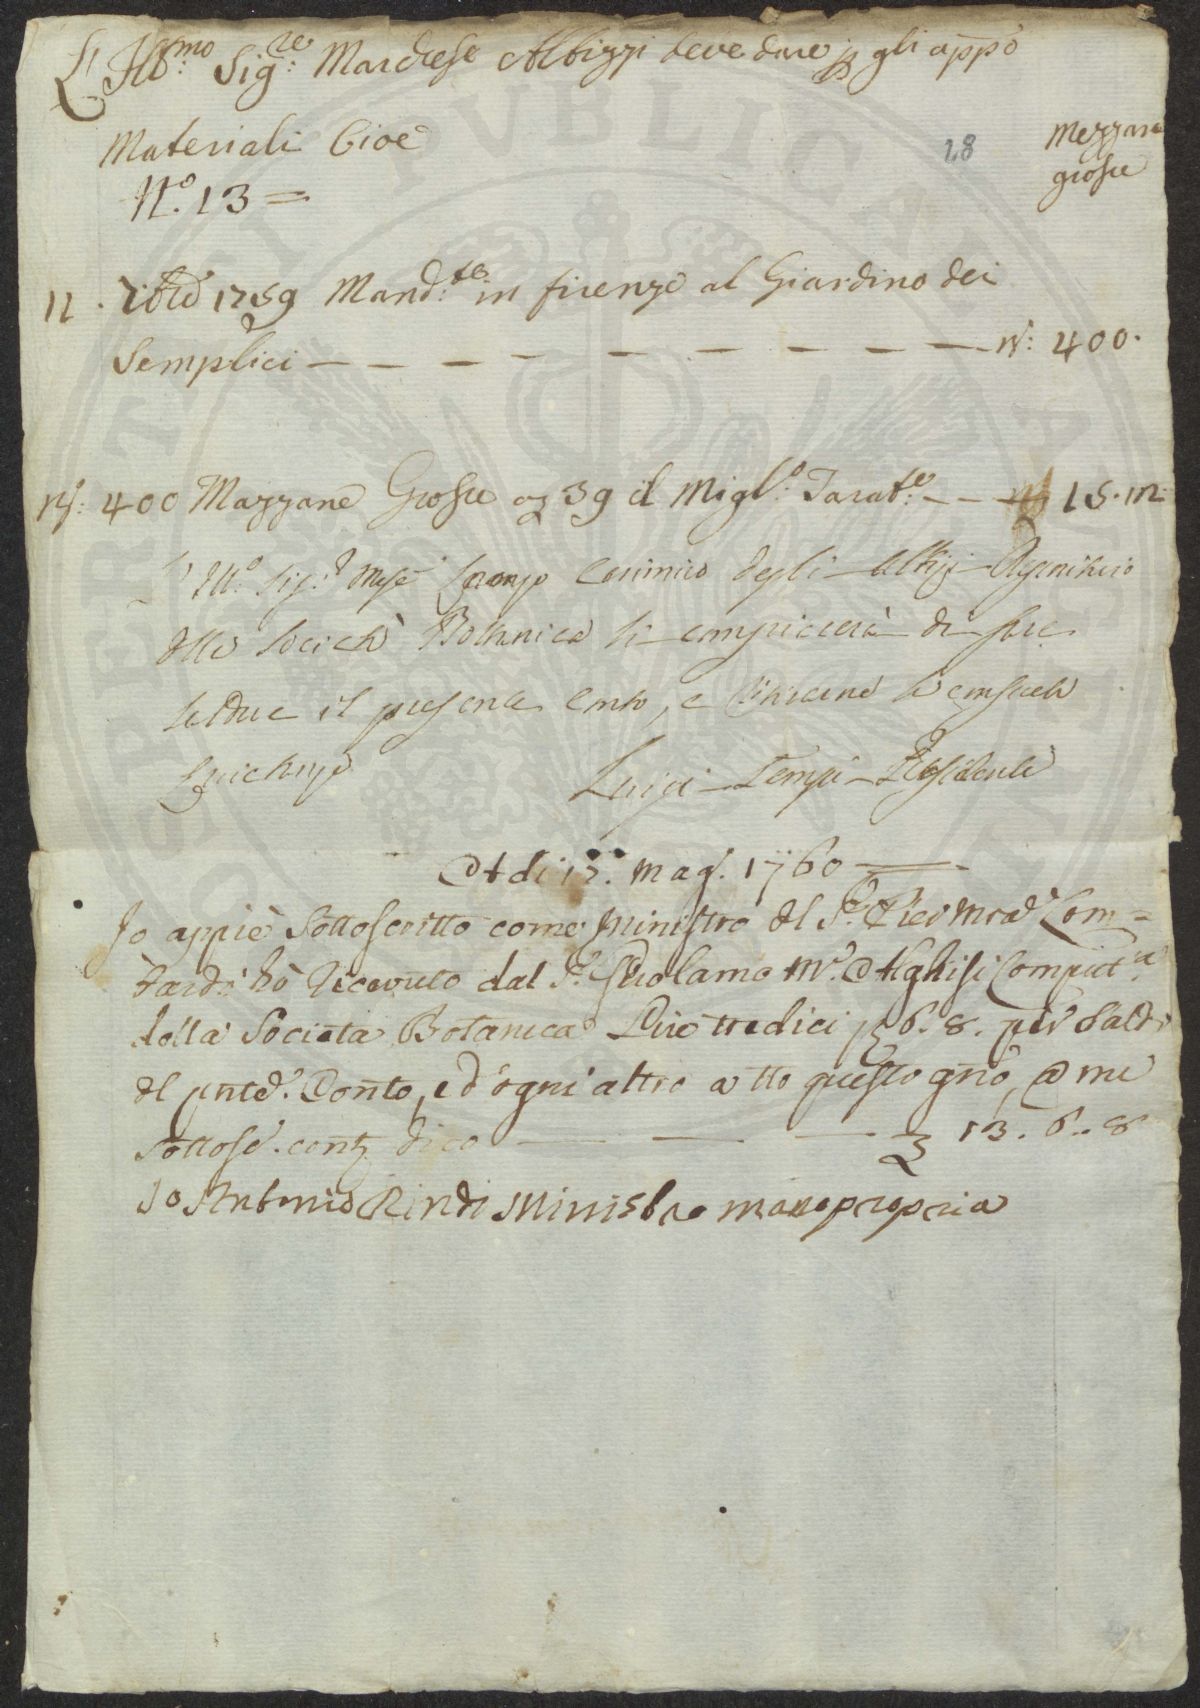 L' Ill:mo Sig:re Marchese Albizzi deve dare p gli appo
Materiali Cioe
28
Mezzane
grosse
N.o 13 =
11. 7bre 1759 Mand:te in firenze al Giardino dei
Semplici — — — — — — — — — n: 400.
n: 400 Mezzane Grosse a 39 il Migl:o Tarat:e — — 15.12
L' Ill.o Sig.r Mse Cosimo degli Albizi Provveditore
della Società Botanica si compiacerà di fare
saldare il presente Conto, e ritirarne la consueta
Luigi Tempi Presidente
Adi 17. Mag. 1760
Io appiè Sottoscritto come Ministro del S.e Pier
ho ricevuto dal S.e Girolamo M.a Alghisi Comput.ta
della Societa Botanica Lire tredici 6.8. per saldo
del pnte. Conto, ed ogni altro a tto questo gno, a me
sottosc. cont. dico — — — 13.6.8
Io Antonio Rindi Ministro mano propria